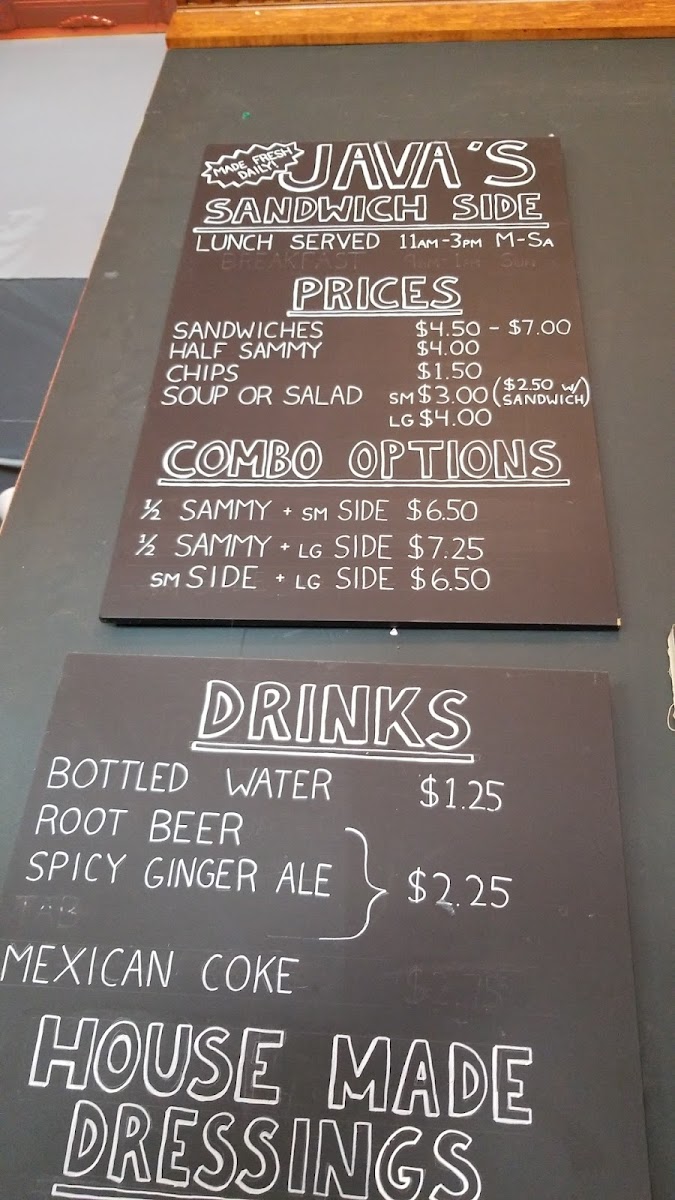 MADE FRESH
DAILY!
JAVA'S
SANDWICH SIDE
LUNCH SERVED 11AM-3PM M-SA
BREAKFAST 9AM-1PM SUN
PRICES
SANDWICHES $4.50 - $7.00
HALF SAMMY $4.00
CHIPS $1.50
SOUP OR SALAD SM $3.00 ($2.50 W/ SANDWICH)
LG $4.00
COMBO OPTIONS
½ SAMMY + SM SIDE $6.50
½ SAMMY + LG SIDE $7.25
SM SIDE + LG SIDE $6.50
DRINKS
BOTTLED WATER $1.25
ROOT BEER
SPICY GINGER ALE $2.25
TAB
MEXICAN COKE $2.75
HOUSE MADE
DRESSINGS